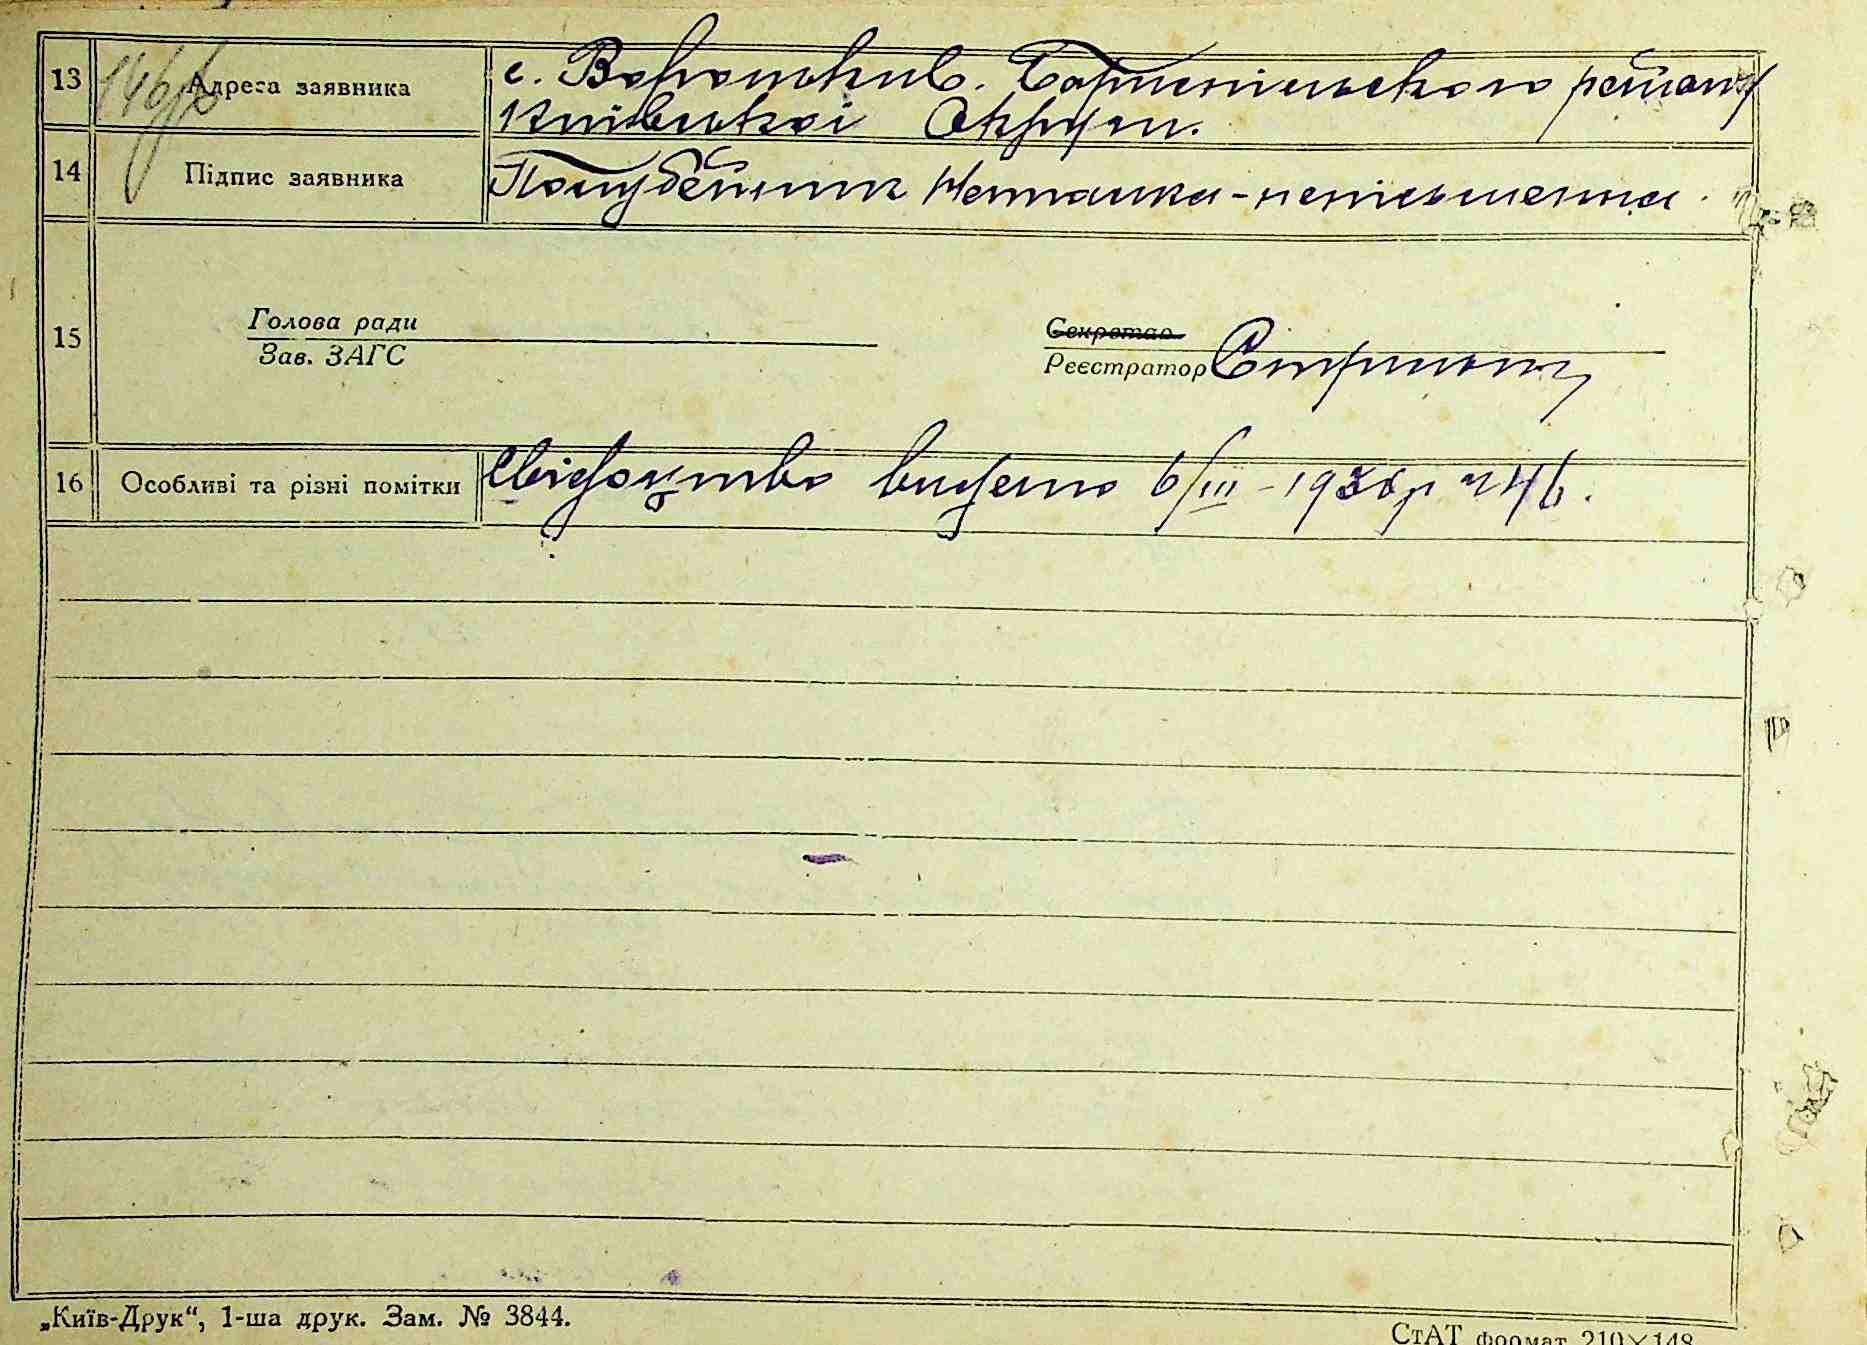 13 Адреса заявника с. Вороньків. Бориспільського району
Київської Округи.
14 Підпис заявника Полубейник Наталка - неписьменна.
15 Голова ради
Зав. ЗАГС
Секретар
Реєстратор
16 Особливі та різні помітки Свідоцтво видано 6/III - 1930 р
„Київ-Друк“, 1-ша друк. Зам. № 3844.
СтАТ формат 210×148